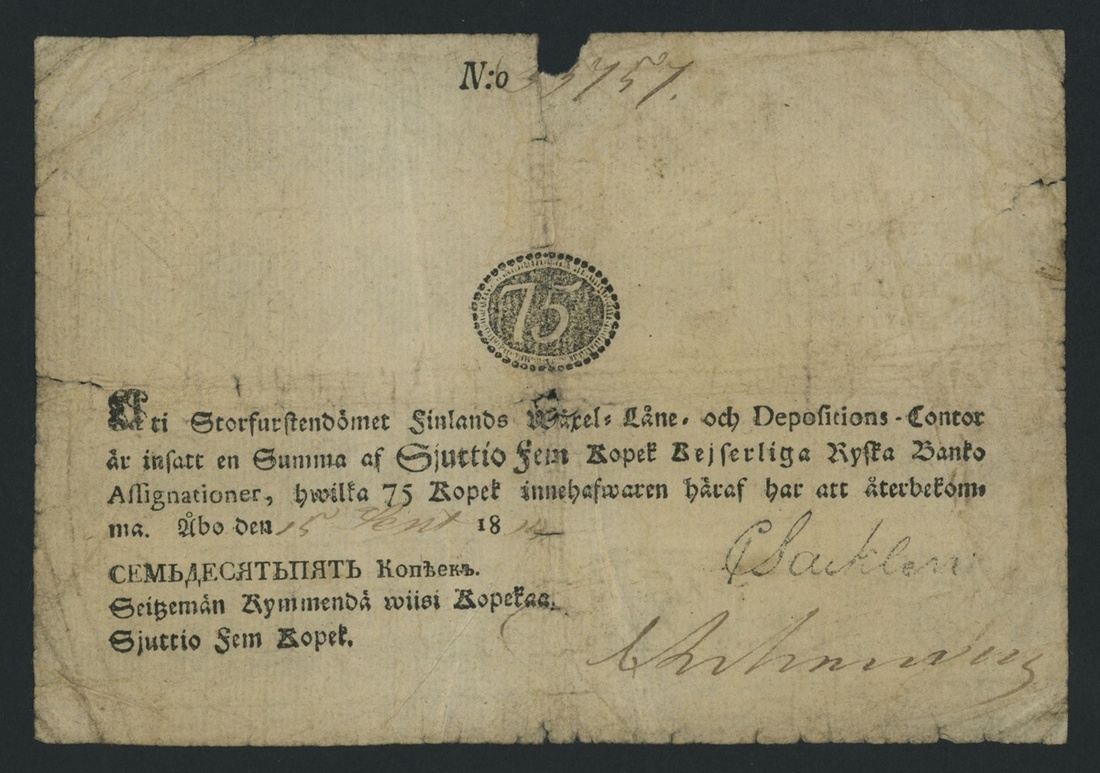 N:o 33757.
75
Uti Storfurstendömet Finlands Wäxel- Låne- och Depositions-Contor
är insatt en Summa af Sjuttio Fem Kopek Kejserliga Ryska Banko
Assignationer, hwilka 75 Kopek innehafwaren häraf har att återbekom-
ma. Åbo den 15 Sept 1814
СЕМЬДЕСЯТЬПЯТЬ Копѣекъ.
Seitzemän Kymmendä wiisi Kopekaa.
Sjuttio Fem Kopek.